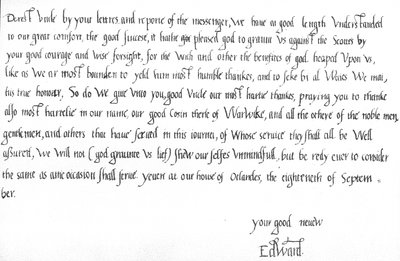 Derest Vncle by your letters and reporte of the messenger, We haue at good length Vnderstanded
to our great comfort, the good succese, it hathe pleased god to graunt Vs against the Scottes by
your good courage and wise forsight, for the wich and other the benefites of god heaped Vpon vs,
like as We ar most bounden to yeld him most humble thankes, and to seke bi al Waies We mai,
his true honour. So do We giue Vnto you, good Vncle our most hartie thankes, praying you to thanke
also most hartelie in our name, our good Cosin therle of Warwike, and all the othere of the noble men,
gentlemen, and others that haue serued in this iournei, of Whose seruice they shall all be Well
assured, We Will not (god graunte Vs lief) shew our selfes Vnmindfull, but be redy euer to consider
the same as anie occasion shall serue. yeuen at our house of Otlandes, the eighteneth of Septem=
ber.
your good neuew
Edward.